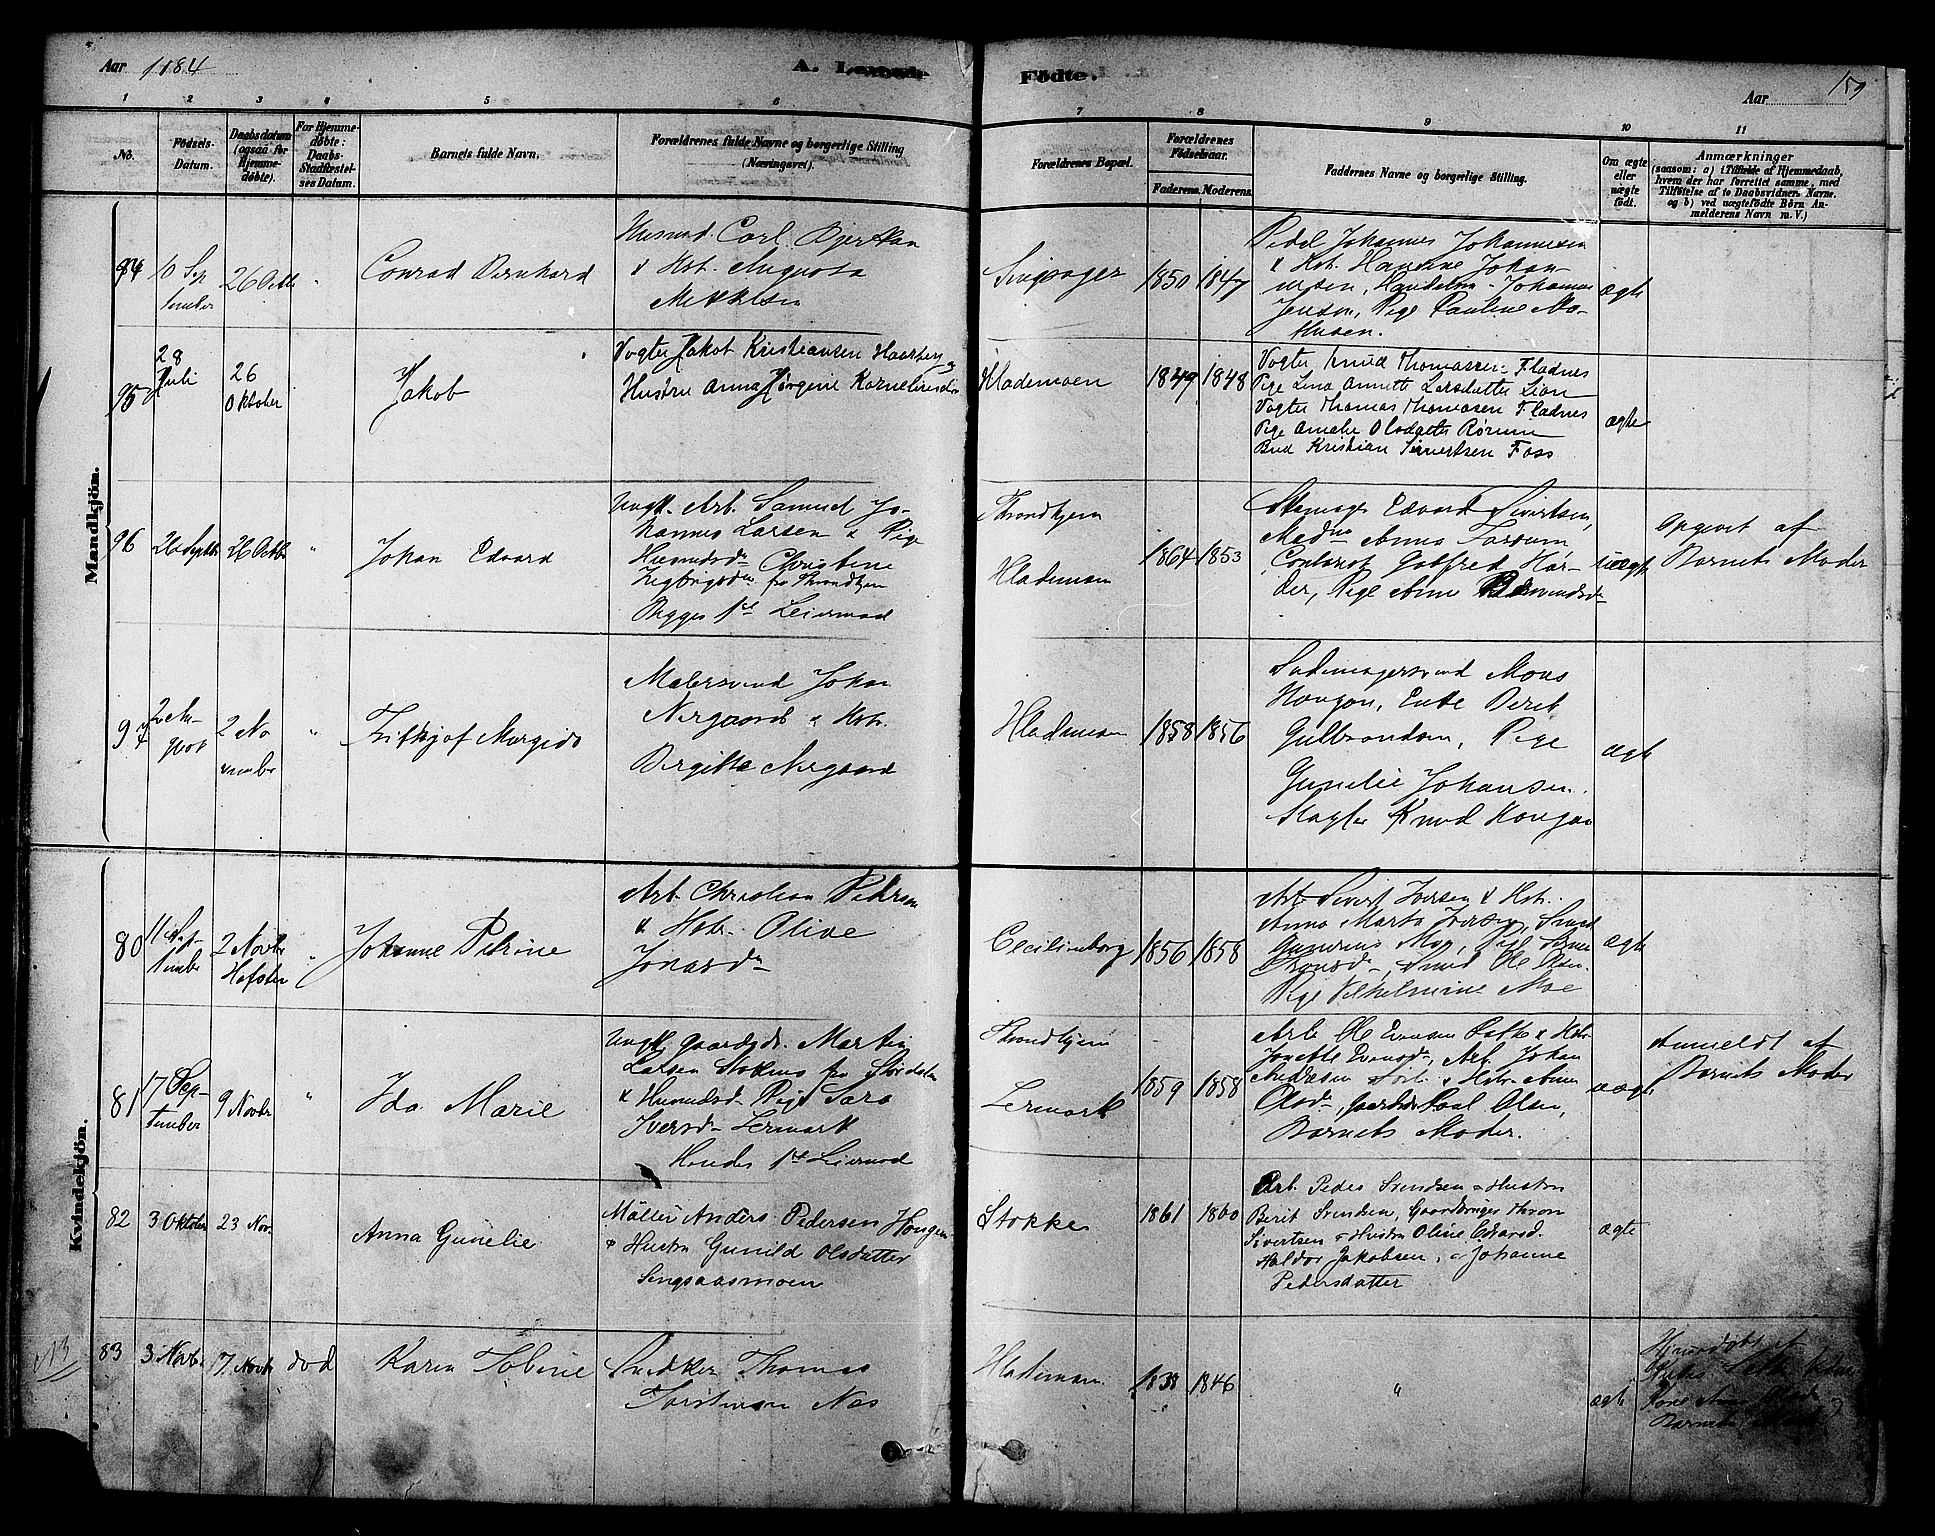 Aar 1884
A. Levende
Fødte.
Aar
159
1 2 3 4 5 6
7 8 9 10 11
No.
Fødsels-
Datum.
Daabsdatum
(ogsaa for
Hjemme-
døbte).
For Hjemme-
døbte:
Daabs-
Stadfæstel-
ses Datum.
Barnets fulde Navn.
Forældrenes fulde Navne og borgerlige Stilling
(Næringsvei).
Forældrenes Bopæl.
Forældrenes
Fødselsaar.
Faderens. Moderens.
Faddernes Navne og borgerlige Stilling.
Om ægte
eller
uægte
født.
Anmærkninger
(saasom: a) i Tilfælde af Hjemmedaab,
hvem der har forrettet samme, med
Tilføielse af to Daabsvidners Navne.
og b) ved uægtefødte Børn An-
melderens Navn m. V.)
Mandkjøn.
94
10 Sep
tember
26 Octb
"
Conrad Bernhard
Husmd. Carl Bjerkan
& Hst. Augusta
Mikkelsen
1850
1847
Pedel Johannes Johannesen
& Hst. Hansine Johan-
nesen, Handelsm. Johannes
Jenson, Pige Pauline Ma-
thisen.
ægte
95
28
Juli
26
Oktober
Jakob
Vogter Jakob Kristiansen Haarberg
Hustru Anna Jørgine Kornelinesdtr
Hlademoen
1849
1848
Vogter Knud Thomassen Fladnes
Pige Lina Annette Larsdatter Lian
Vogter Thomas Thomasen Fladnes
Pige Amalie Olsdatter Rørum
Bud Kristian Sivertsen Foss
ægte
96
26 Septb
26 Octb
"
Johan Edvard
Ungk. Arb. Samuel Jo-
hannes Larsen & Pige
Husmdsd. Christine
fra Throndhjem
Begges 1ste Leiermaal
Throndhjem
Hlademoen
1864
1853
Edvard Sivertsen,
Mad. Anna
Contorist Gotfred Har-
der, Pige Anne
uægte
Opgivet af
Barnets Moder
97
2 Au-
gust
2 No
vember
"
Fritkjof Margido
Malersvend Johan
Nergaard & Hst.
Birgitte Nergaard
Hlademoen
1858
1856
Sadelmagersvend Mons
Haugan, Enke Berit
Gulbrandsen, Pige
Gunelie Johansen.
Slagter Knud Haugan
ægte
Kvindekjøn.
80
11 Sep-
tember
2 Novbr
Hofsten
"
Johanne Petrine
Arb. Christian Pedersen
& Hstr. Olive
Jonasd.
Cecilienborg
1856
1858
Arb. Sivert Iversen & Hstr.
Anna Marta Iversen, Smed
Moe, Pige
Smed Ole Olsen
Pige Vilhelmine Moe
ægte
81
17 Sep-
tember
9 Novbr
"
Ida Marie
Ungk. Gaardgdr. Martin
Larsen Stokmo fra Stjørdalen
& Husmdsd. Pige Sara
Iversd. Lermark
Hendes 1ste Leiermaal
Throndhjem
Lermark
1859
1858
Arb. Ole Evensen & Hstr
Jonette Evensd., Arb. Johan
Andersen & Hstr. Anne
Olsd., Gaardbr Paal Olsen,
Barnets Moder.
uægte
Anmeldt af
Barnets Moder
82
3 Oktober
23 Nov.
Anna Gunelie
Møller Anders Pedersen Haugen
& Hustru Gunild Olsdatter
Singsaasmoen
Stokke
1861
1860
Arb. Peder Svendsen & Hustru
Berit Svendsen, Gaardbruger Thron
Sivertsen & Hustru Oline Edvardsd.
Haldor Jakobsen, & Johanne
Pedersdatter
ægte
NB
83
3 Novb.
7. Novb
død
Karen Tobine
Snedker Thomas
Torstensen Næs
Hlademoen
1838
1846
"
ægte
Hjemmedøbt af
Kone Anne
Barnets